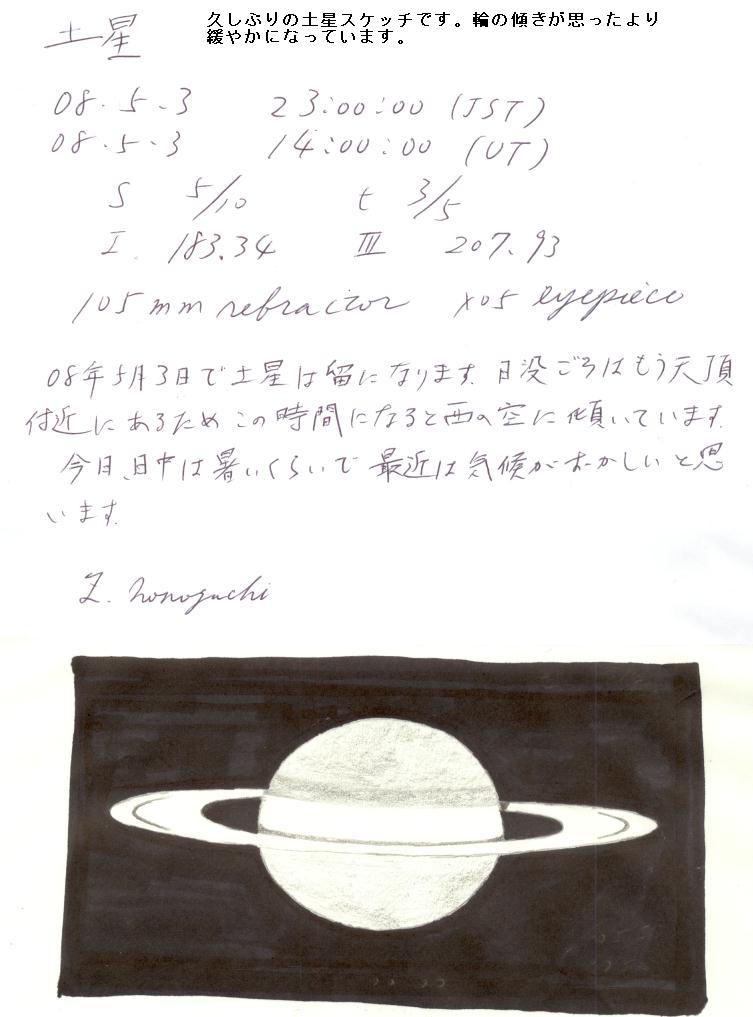 久しぶりの土星スケッチです。輪の傾きが思ったより
緩やかになっています。
土星
08.5.3 23:00:00 (JST)
08.5.3 14:00:00 (UT)
S 5/10 t 3/5
I. 183.34 III 207.93
105mm refractor x05 eyepiece
08年5月3日で土星は留になります。日没ごろはもう天頂
付近にあるためこの時間になると西の空に傾いています。
今日、日中は暑いくらいで最近は気候がおかしいと思
います。